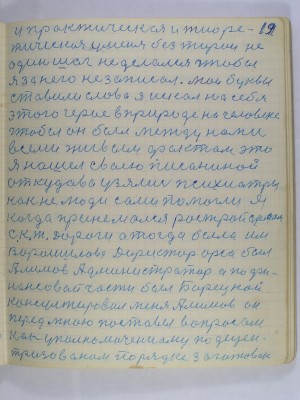 и практическая и теоре- 19
тическая имели без терии не
один шаг не делался чтобы
я за него не записал. Мои буквы
ставили слова я искал на себя
этого герое в природе на человека
чтобы он был между нами
всеми живым фактом это
я нашел своею писаниной
откудава взялись психиатры
как не люди сами помогли я
когда принемался
С.К.Ж. дороги а тогда была им
Ворошилова Деректир орса был
Алимов Администратор а по фи-
нансовай части был Борецкой
консультировал меня Алимов он
передмною поставил вопросам
как уполномоченому по децен-
тризованом порядке заготовак